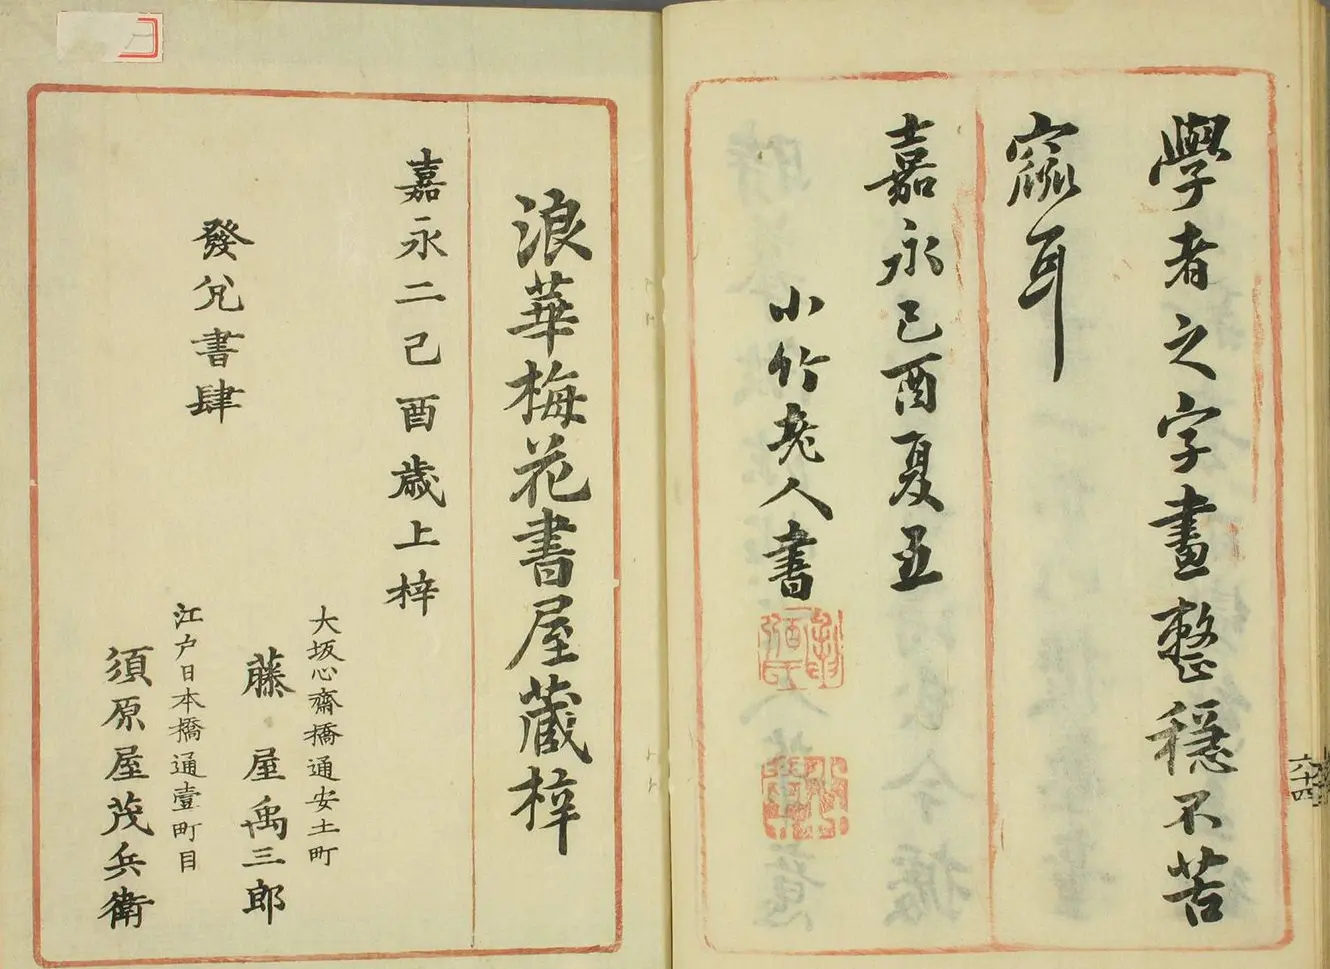 學者之字畫整穩不苦
窳耳
嘉永己酉夏五
小竹老人書
六十四
浪華梅花書屋藏梓
嘉永二己酉歳上梓
發兌書肆
大坂心齋橋通安土町
藤屋禹三郎
江戸日本橋通壹町目
須原屋茂兵衛